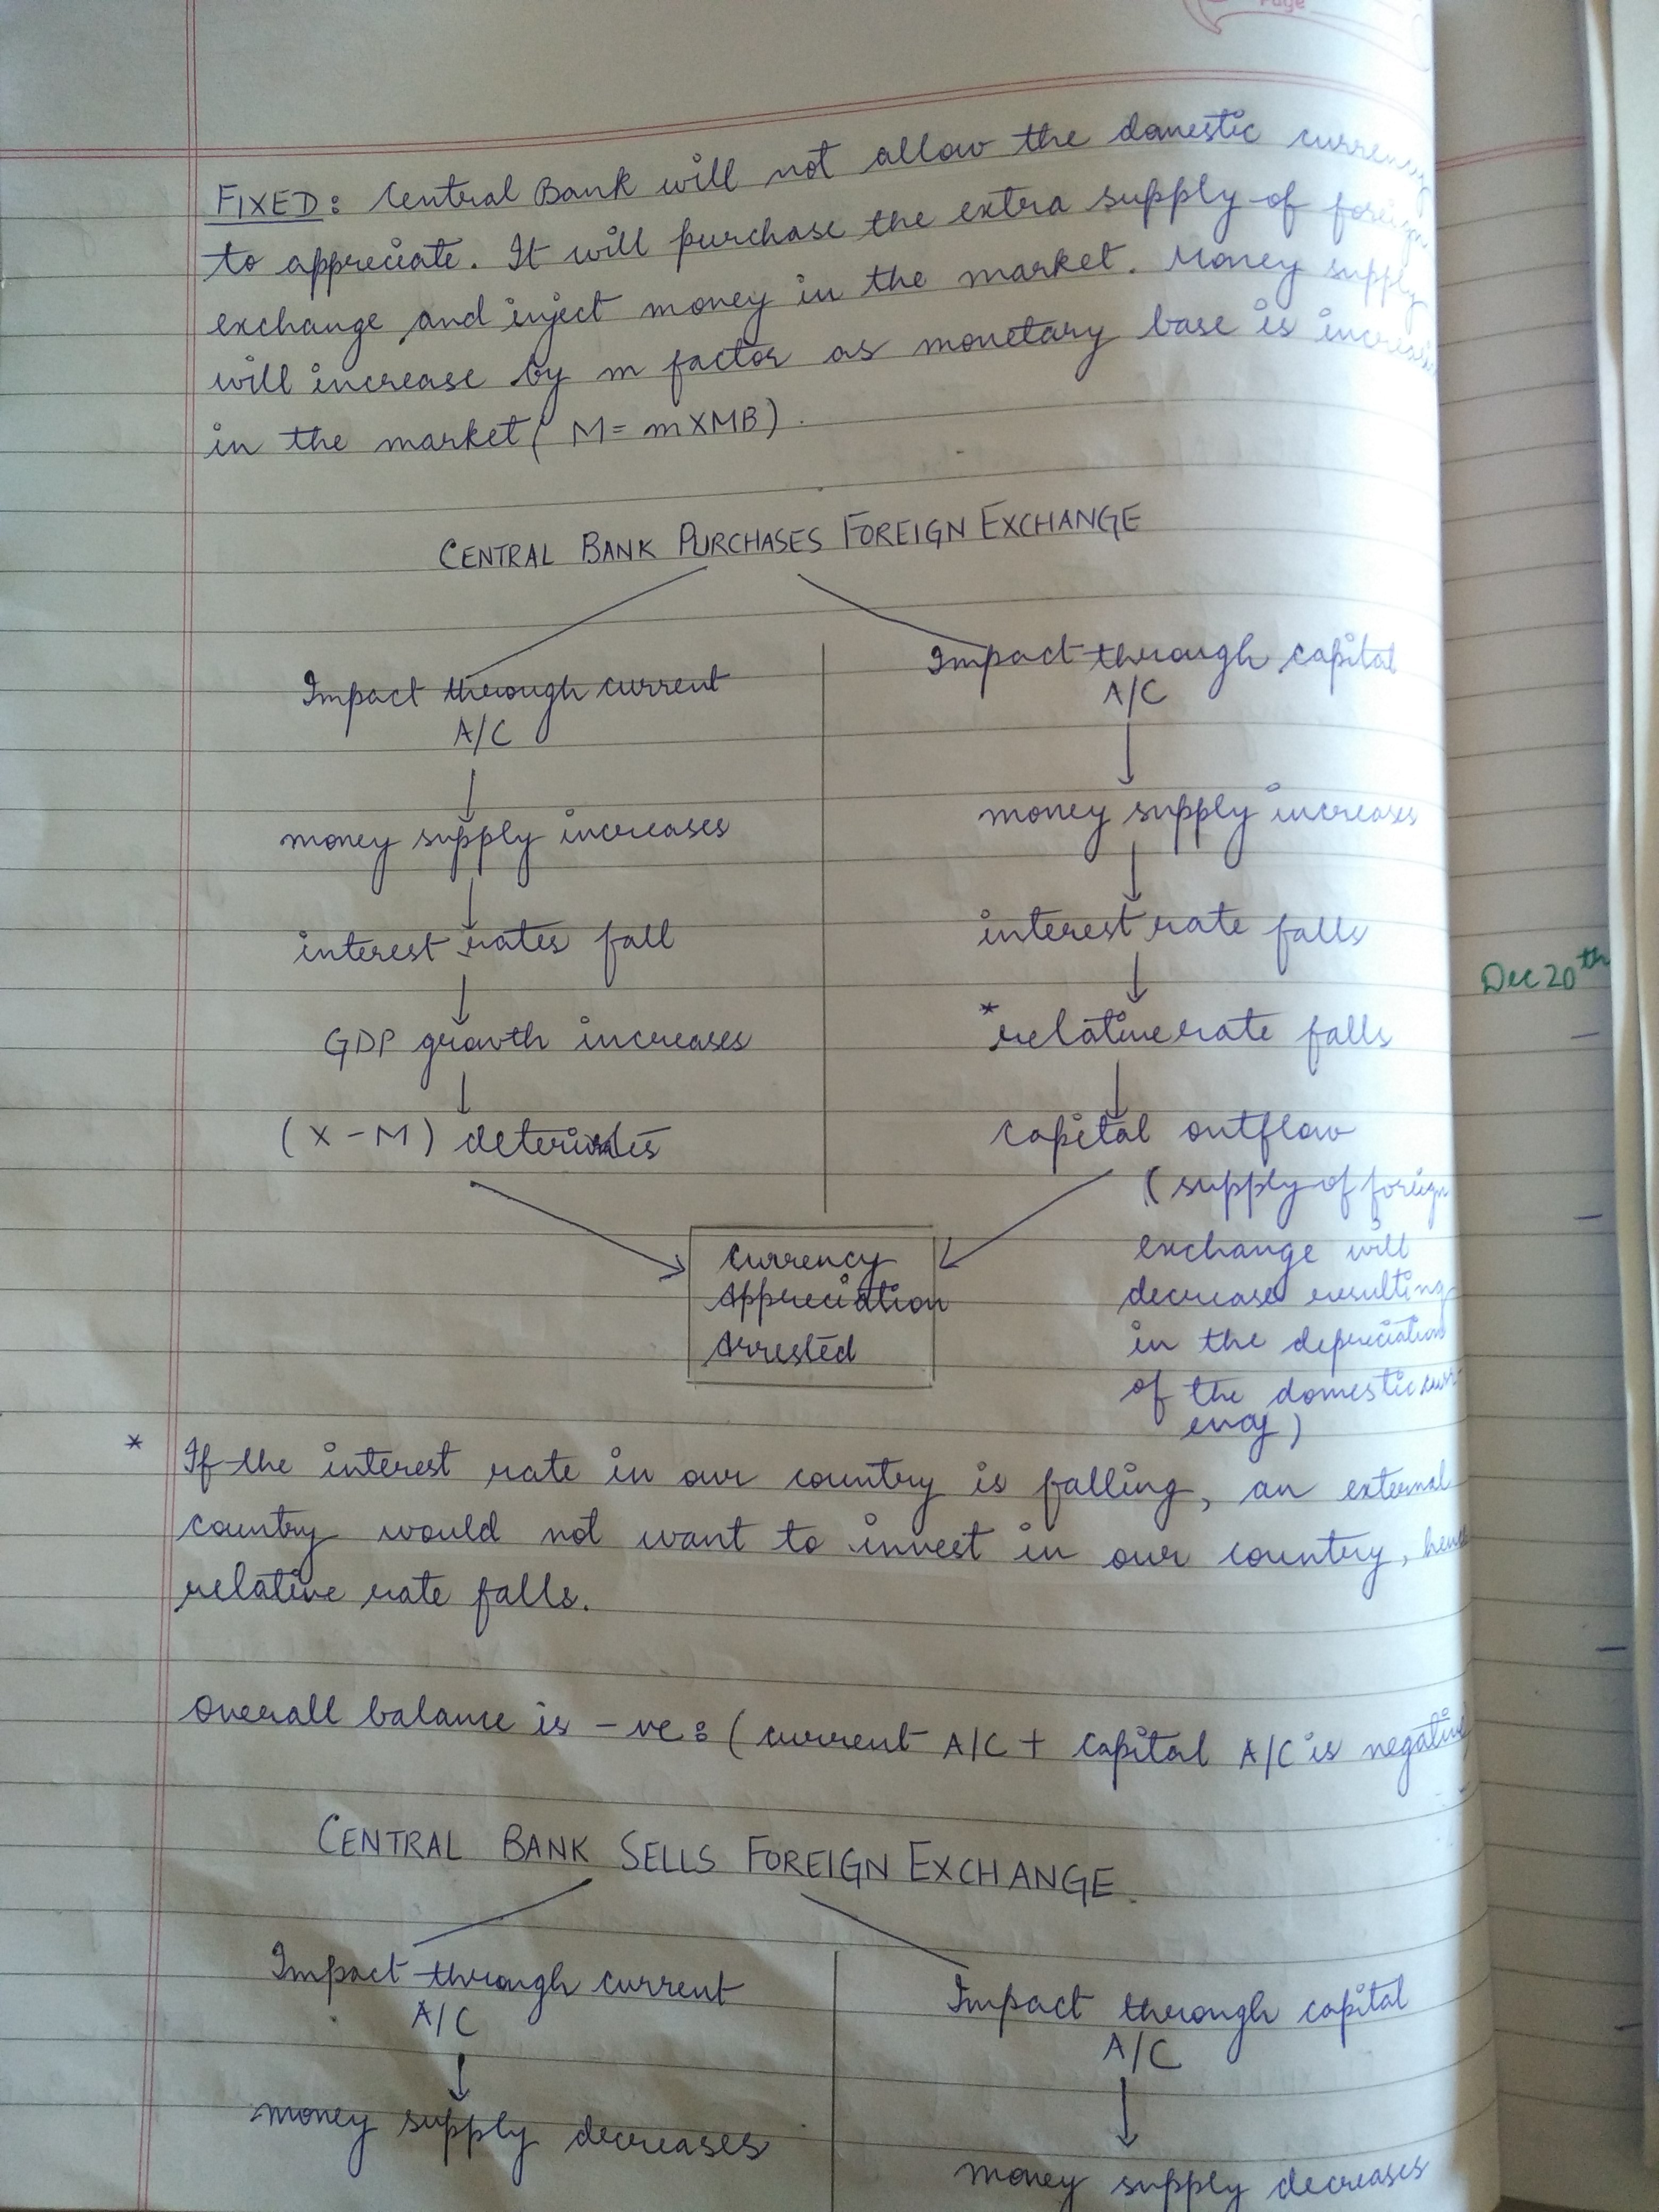 Page
FIXED: Central Bank will not allow the domestic currency
to appreciate. It will purchase the extra supply of foreign
exchange and inject money in the market. Money supply
will increase by m factor as monetary base is
in the market ( M = m X MB ) .
CENTRAL BANK PURCHASES FOREIGN EXCHANGE
Impact through current
A/C
money supply increases
interest rates fall
GDP growth increases
(X - M)
Impact through capital
A/C
money supply increases
interest rate falls
*relative rate falls
capital outflow
(supply of foreign
exchange will
decrease resulting
in the depreciation
of the domestic curr
ency)
Currency
Appreciation
Arrested
* If the interest rate in our country is falling, an external
country would not want to invest in our country, hence
relative rate falls.
Overall balance is -ve : (current A/C + capital A/C is negative
CENTRAL BANK SELLS FOREIGN EXCHANGE.
Impact through current
A/C
money supply decreases
Impact through capital
A/C
money supply decreases
Dec 20th